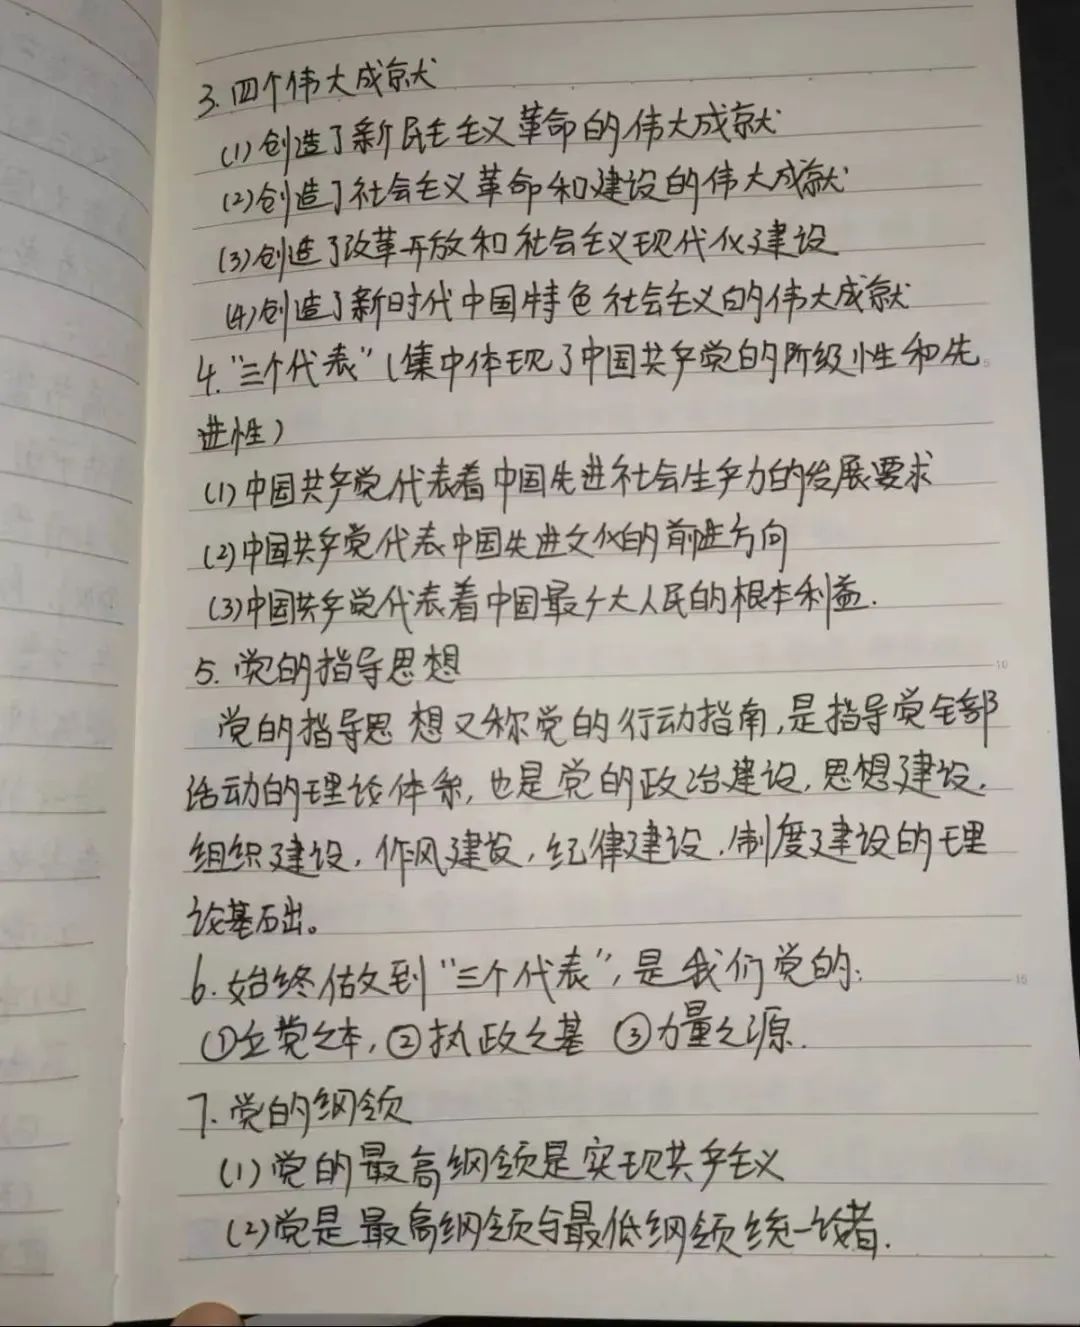 3. 四个伟大成就
(1)创造了新民主主义革命的伟大成就
(2)创造了社会主义革命和建设的伟大成就
(3)创造了改革开放和社会主义现代化建设
(4)创造了新时代中国特色社会主义的伟大成就
4. "三个代表"(集中体现了中国共产党的阶级性和先
进性)
(1)中国共产党代表着中国先进社会生产力的发展要求
(2)中国共产党代表中国先进文化的前进方向
(3)中国共产党代表着中国最广大人民的根本利益.
5. 党的指导思想
党的指导思想又称党的行动指南,是指导党全部
活动的理论体系,也是党的政治建设,思想建设,
组织建设,作风建设,纪律建设,制度建设的理
论基石出。
6. 始终做到"三个代表",是我们党的:
①立党之本,②执政之基 ③力量之源.
7. 党的纲领
(1)党的最高纲领是实现共产主义
(2)党是最高纲领与最低纲领统一论者.